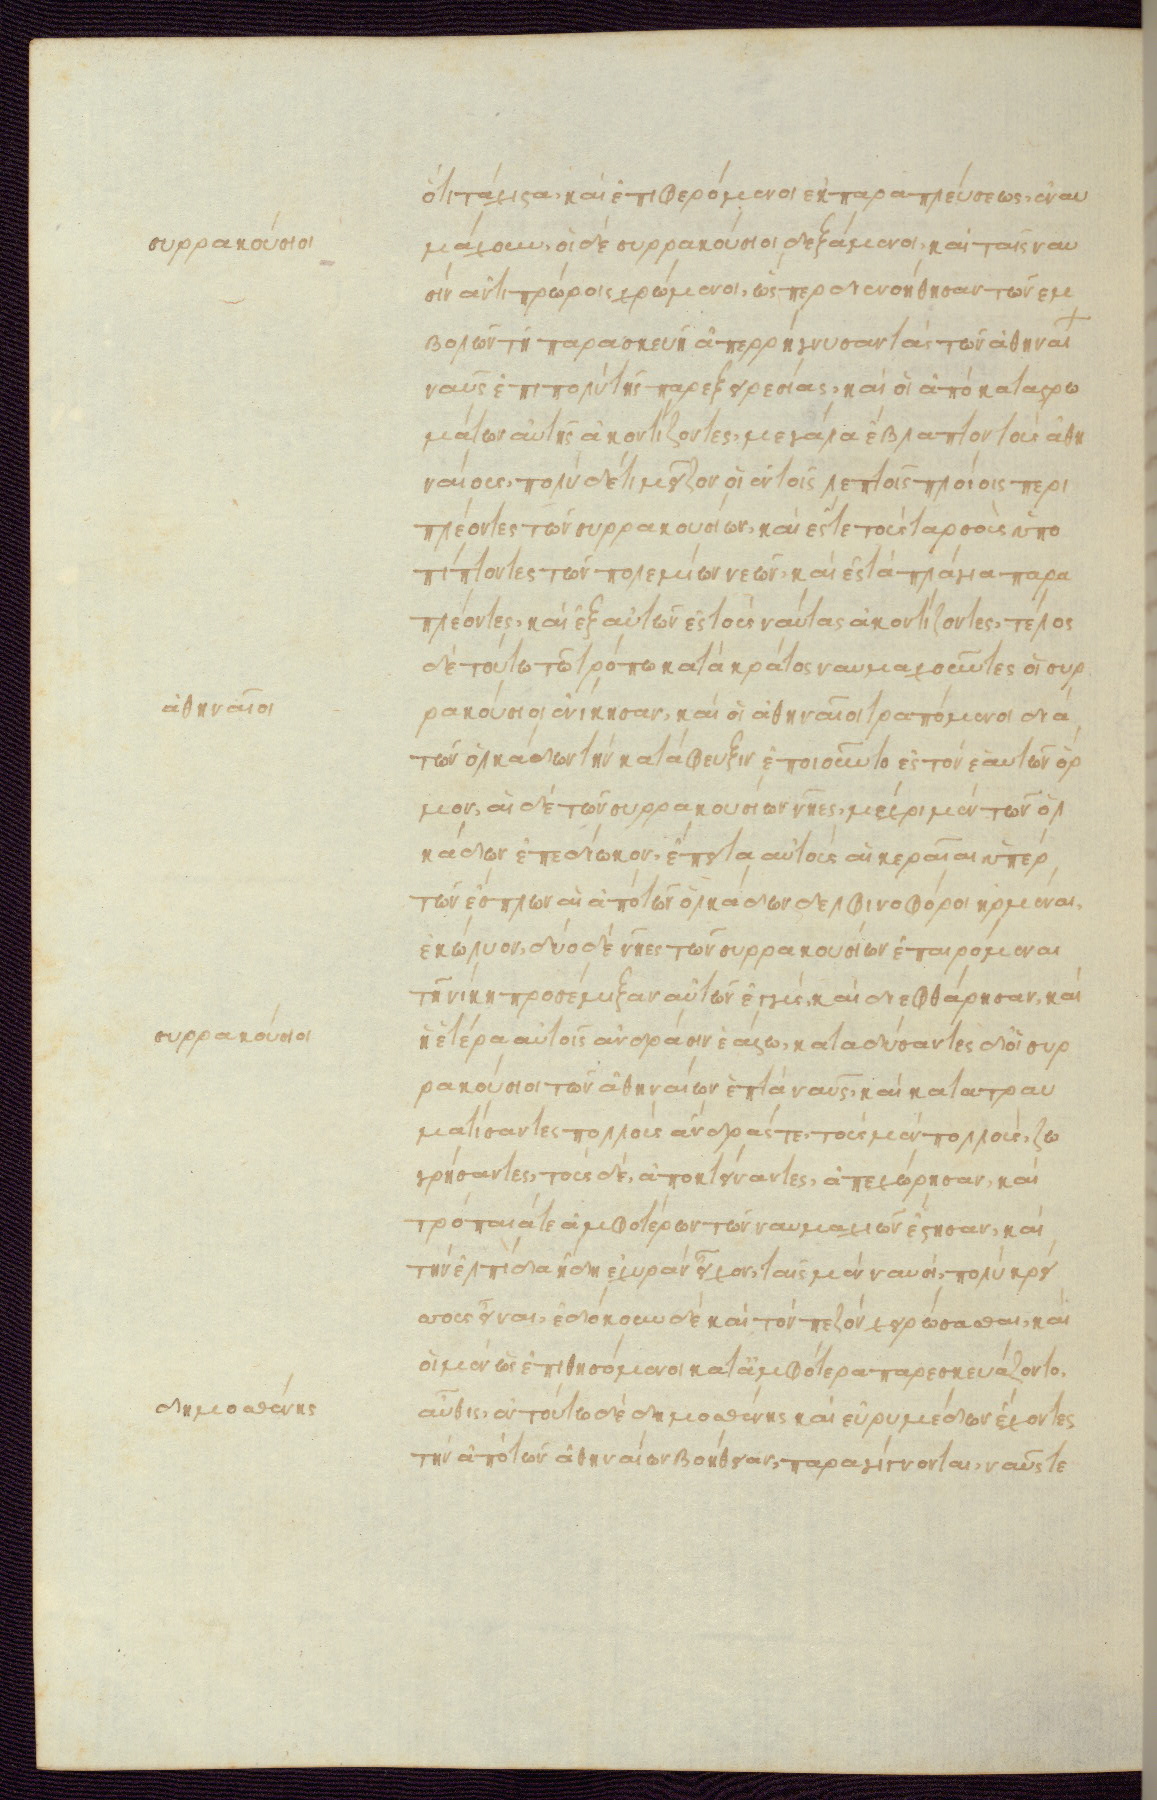 ὅτι τάχιστα, καὶ ἐπιφερόμενοι ἐκ παραπλεύσεως, ἐναυ
συρρακούσιοι
μάχουν, οἱ δὲ συρρακούσιοι δεξάμενοι, καὶ ταῖς ναυ
σὶν ἀντιπρώροις χρώμενοι, ὥσπερ διενοήθησαν τῶν ἐμ
βολῶν τῇ παρασκευῇ ἀπερρήγνυσαν τὰς τῶν ἀθηναί
ναῦς ἐπιπολὺ τῆς παρεξειρεσίας, καὶ οἱ ἀπὸ καταστρω
μάτων αὐτῆς ἀκοντίζοντες, μεγάλα ἔβλαπτον τοὺς ἀθη
ναίους, πολὺ δ' ἔτι μεῖζον οἱ ἐν τοῖς λεπτοῖς πλοίοις περι
πλέοντες τῶν συρρακουσίων, καὶ ἔς τε τοὺς ταρσοὺς ὑπο
πίπτοντες τῶν πολεμίων νεῶν, καὶ ἐς τὰ πλάγια παρα
πλέοντες, καὶ ἐξ αὐτῶν ἐς τοὺς ναύτας ἀκοντίζοντες, τέλος
δὲ τούτω τῶ τρόπω κατὰ κράτος ναυμαχοῦντες οἱ συρ
ἀθηναῖοι
ρακούσιοι ἐνίκησαν, καὶ οἱ ἀθηναῖοι τραπόμενοι διὰ
τῶν ὁλκάδων τὴν κατάφευξιν ἐποιοῦντο ἐς τὸν ἑαυτῶν ὅρ
μον, αἱ δὲ τῶν συρρακουσίων νῆες, μέχρι μὲν τῶν ὁλ
κάδων ἐπεδίωκον, ἔπειτα αὐτοὺς αἱ κεραῖαι ὑπὲρ
τῶν ἔσπλων αἱ ἀπὸ τῶν ὁλκάδων δελφινοφόροι ἠρμέναι,
ἐκώλυον, δύο δὲ νῆες τῶν συρρακουσίων ἐπαιρόμεναι
τῇ νίκη προσέμιξαν αὐτῶν ἐγγὺς, καὶ διεφθάρησαν, καὶ
συρρακούσιοι
ἡ ἑτέρα αὐτοῖς ἀνδράσιν ἑάλω, καταδύσαντες δ' οἱ συρ
ρακούσιοι τῶν ἀθηναίων ἑπτὰ ναῦς, καὶ κατατραυ
ματίσαντες πολλοὺς ἄνδρας τε, τοὺς μὲν πολλοὺς, ζω
γρήσαντες, τοὺς δὲ, ἀποκτείναντες, ἀπεχώρησαν, καὶ
τρόπαιά τε ἀμφοτέρων τῶν ναυμαχιῶν ἔστησαν, καὶ
τὴν ἐλπίδα ἤδη ἐχυρὰν εἶχον, ταῖς μὲν ναυσὶ, πολὺ κρεί
σσους εἶναι, ἐδόκουν δὲ καὶ τὸν πεζὸν χειρώσασθαι, καὶ
οἱ μὲν ὡς ἐπιθησόμενοι κατ' ἀμφότερα παρεσκευάζοντο,
δημοσθένης
αὖθις, ἐν τούτω δὲ δημοσθένης καὶ εὐρυμέδων ἔχοντες
τὴν ἀπὸ τῶν ἀθηναίων βοήθειαν, παραγίγνονται, ναῦς τε